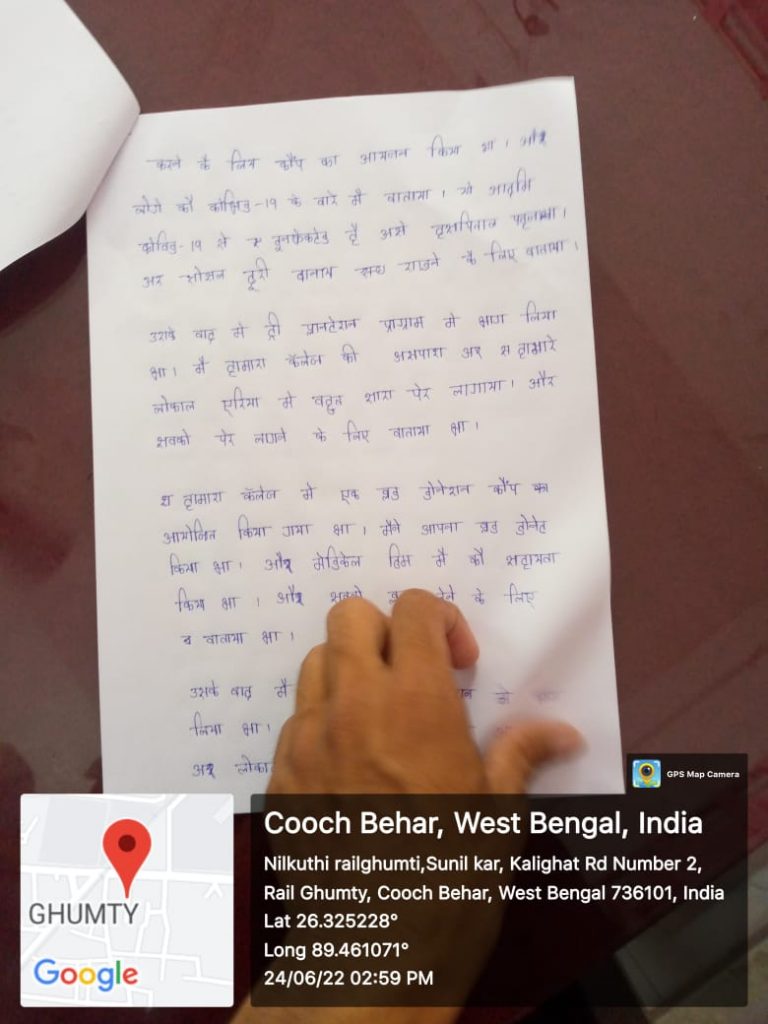 करने के लिय कौंप का आयजन किया था। और
लोगे कौ कोभिड-१९ के वारे मै बाताया। यो आदमि
कोविड-१९ से इनफेकटेड है असे हासपिताल
अर सोसल दूरी वानाय राखने के लिए वाताया।
उसके वाद मे ट्री प्लानटेशन प्राग्राम मे भाग लिया
था। मै हामारा कॅलेज की असपाश अर
लोकाल एरिया मे वहुत सारा पेर लागाया। और
सवको पेर लगाने के लिए वाताया था।
हामारा कॅलेज मे एक ब्लड डोनेशन कौंप का
आयोजित किया गया था। मैने आपना ब्लड डोनेट
किया था। और मेडिकेल टिम मै कौ सहायता
किया था। और सबको देने के लिए
व वाताया था।
उसके वाद मै
लिया था।
अर लोका
GPS Map Camera
Cooch Behar, West Bengal, India
Nilkuthi railghumti,Sunil kar, Kalighat Rd Number 2,
Rail Ghumty, Cooch Behar, West Bengal 736101, India
Lat 26.325228°
Long 89.461071°
24/06/22 02:59 PM
GHUMTY
Google